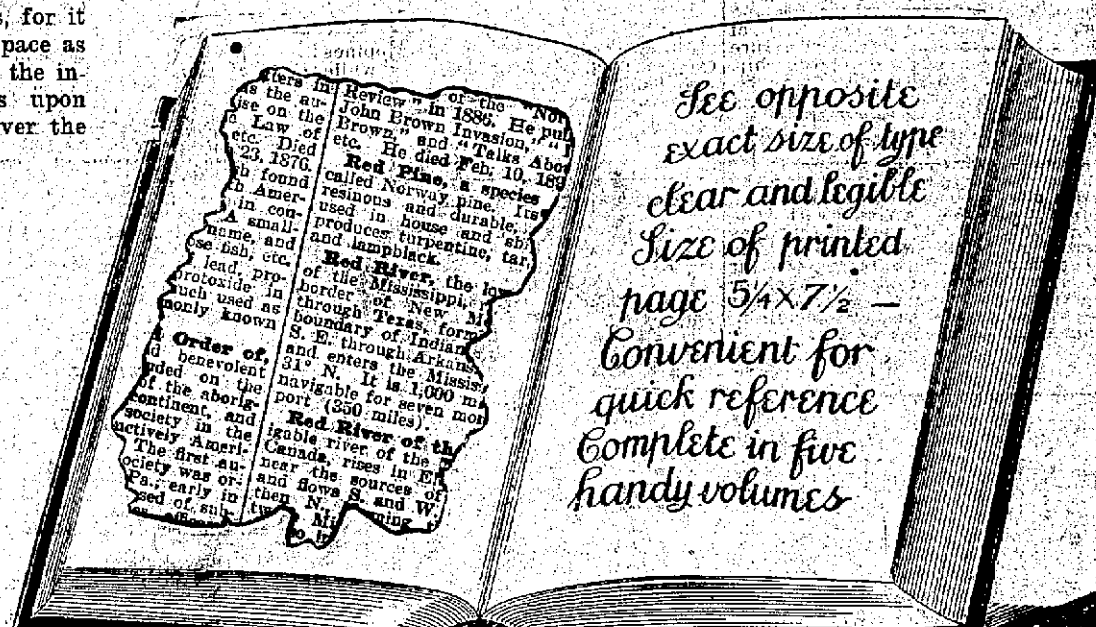 s, for it
pace as
the in-
s upon
ver the
tters in
is the au-
ise on the
Law of
etc. Died
23, 1876.
h found
th Amer-
in con-
A small-
name, and
ose fish, etc.
lead, pro-
protoxide. In
much used as
monly known
Order of,
d benevolent
nded on the
of the aborig-
continent, and
society in the
nctively Ameri-
The first au-
ociety was or-
Pa., early in
sed of sub-
of the "Nor
Review" in 1886. He pub
John Brown Invasion," "J
Brown," and "Talks Abo
etc. He died Feb. 10, 189
Red Pine, a species
called Norway pine. Its
resinous and durable,
used in house and shi
produces turpentine, tar,
and lampblack.
Red River, the low
of the Mississippi,
border of New M
through Texas, form
boundary of Indian
S. E. through Arkans
and enters the Missis
31° N. It is 1,000 m
navigable for seven mon
port (350 miles).
Red River of th
igable river of the
Canada, rises in El
near the sources of
and flows S. and W.
then N.
See opposite
exact size of type
clear and legible
Size of printed
page 5¼ x 7½ —
Convenient for
quick reference
Complete in five
handy volumes